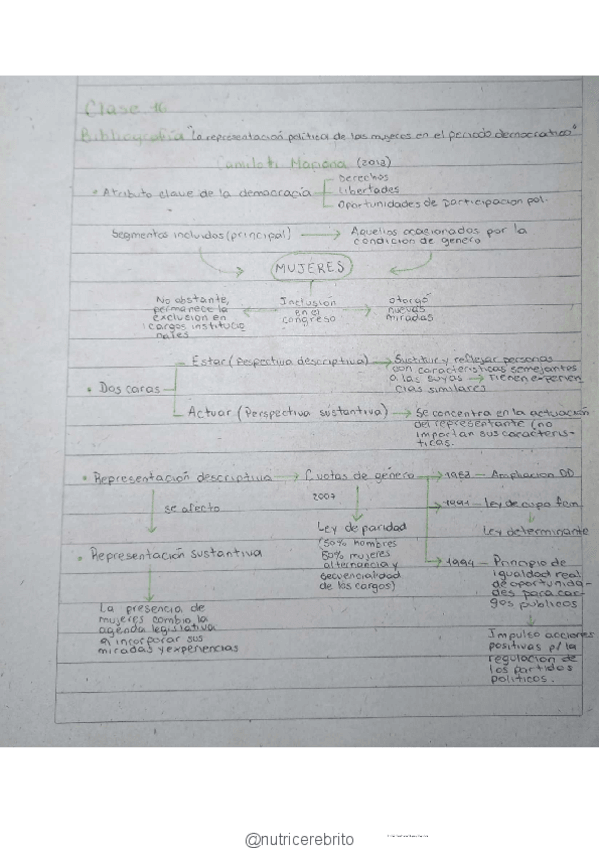 Clase 16
Bibliografía "La representación política de las mujeres en el periodo democratico"
Camiloti Mariana (2013)
• Atributo clave de la democracia
Derechos
Libertades
Oportunidades de participacion pol.
Segmentos incluidos (principal) → Aquellos ocasionados por la
condición de genero
MUJERES
No obstante,
permanece la
exclusion en
cargos institucio
nales
Inclusion
en el
congreso
otorgó
nuevas
miradas
• Dos caras
Estar (Perspectiva descriptiva) → Sustituir y reflejar personas
con caracteristicas semejantes
a las suyas → Tienen experien
cias similares
Actuar (Perspectiva sustantiva) → Se concentra en la actuación
del representante (no
importan sus caracteris-
ticas.
• Representación descriptiva → Cuotas de género → 1983 — Ampliacion DD
se afecto
2007
Ley de paridad
(50% hombres
50% mujeres
alternancia y
secuencialidad
de los cargos)
1991 — ley de cupo fem
Ley determinante
1994 — Principio de
igualdad real
de oportunida-
des para car-
gos publicos
Impulso acciones
positivas p/ la
regulacion de
los partidos
politicos.
• Representación sustantiva
La presencia de
mujeres cambio la
agenda legislativa
al incorporar sus
miradas y experiencias
@nutricerebrito